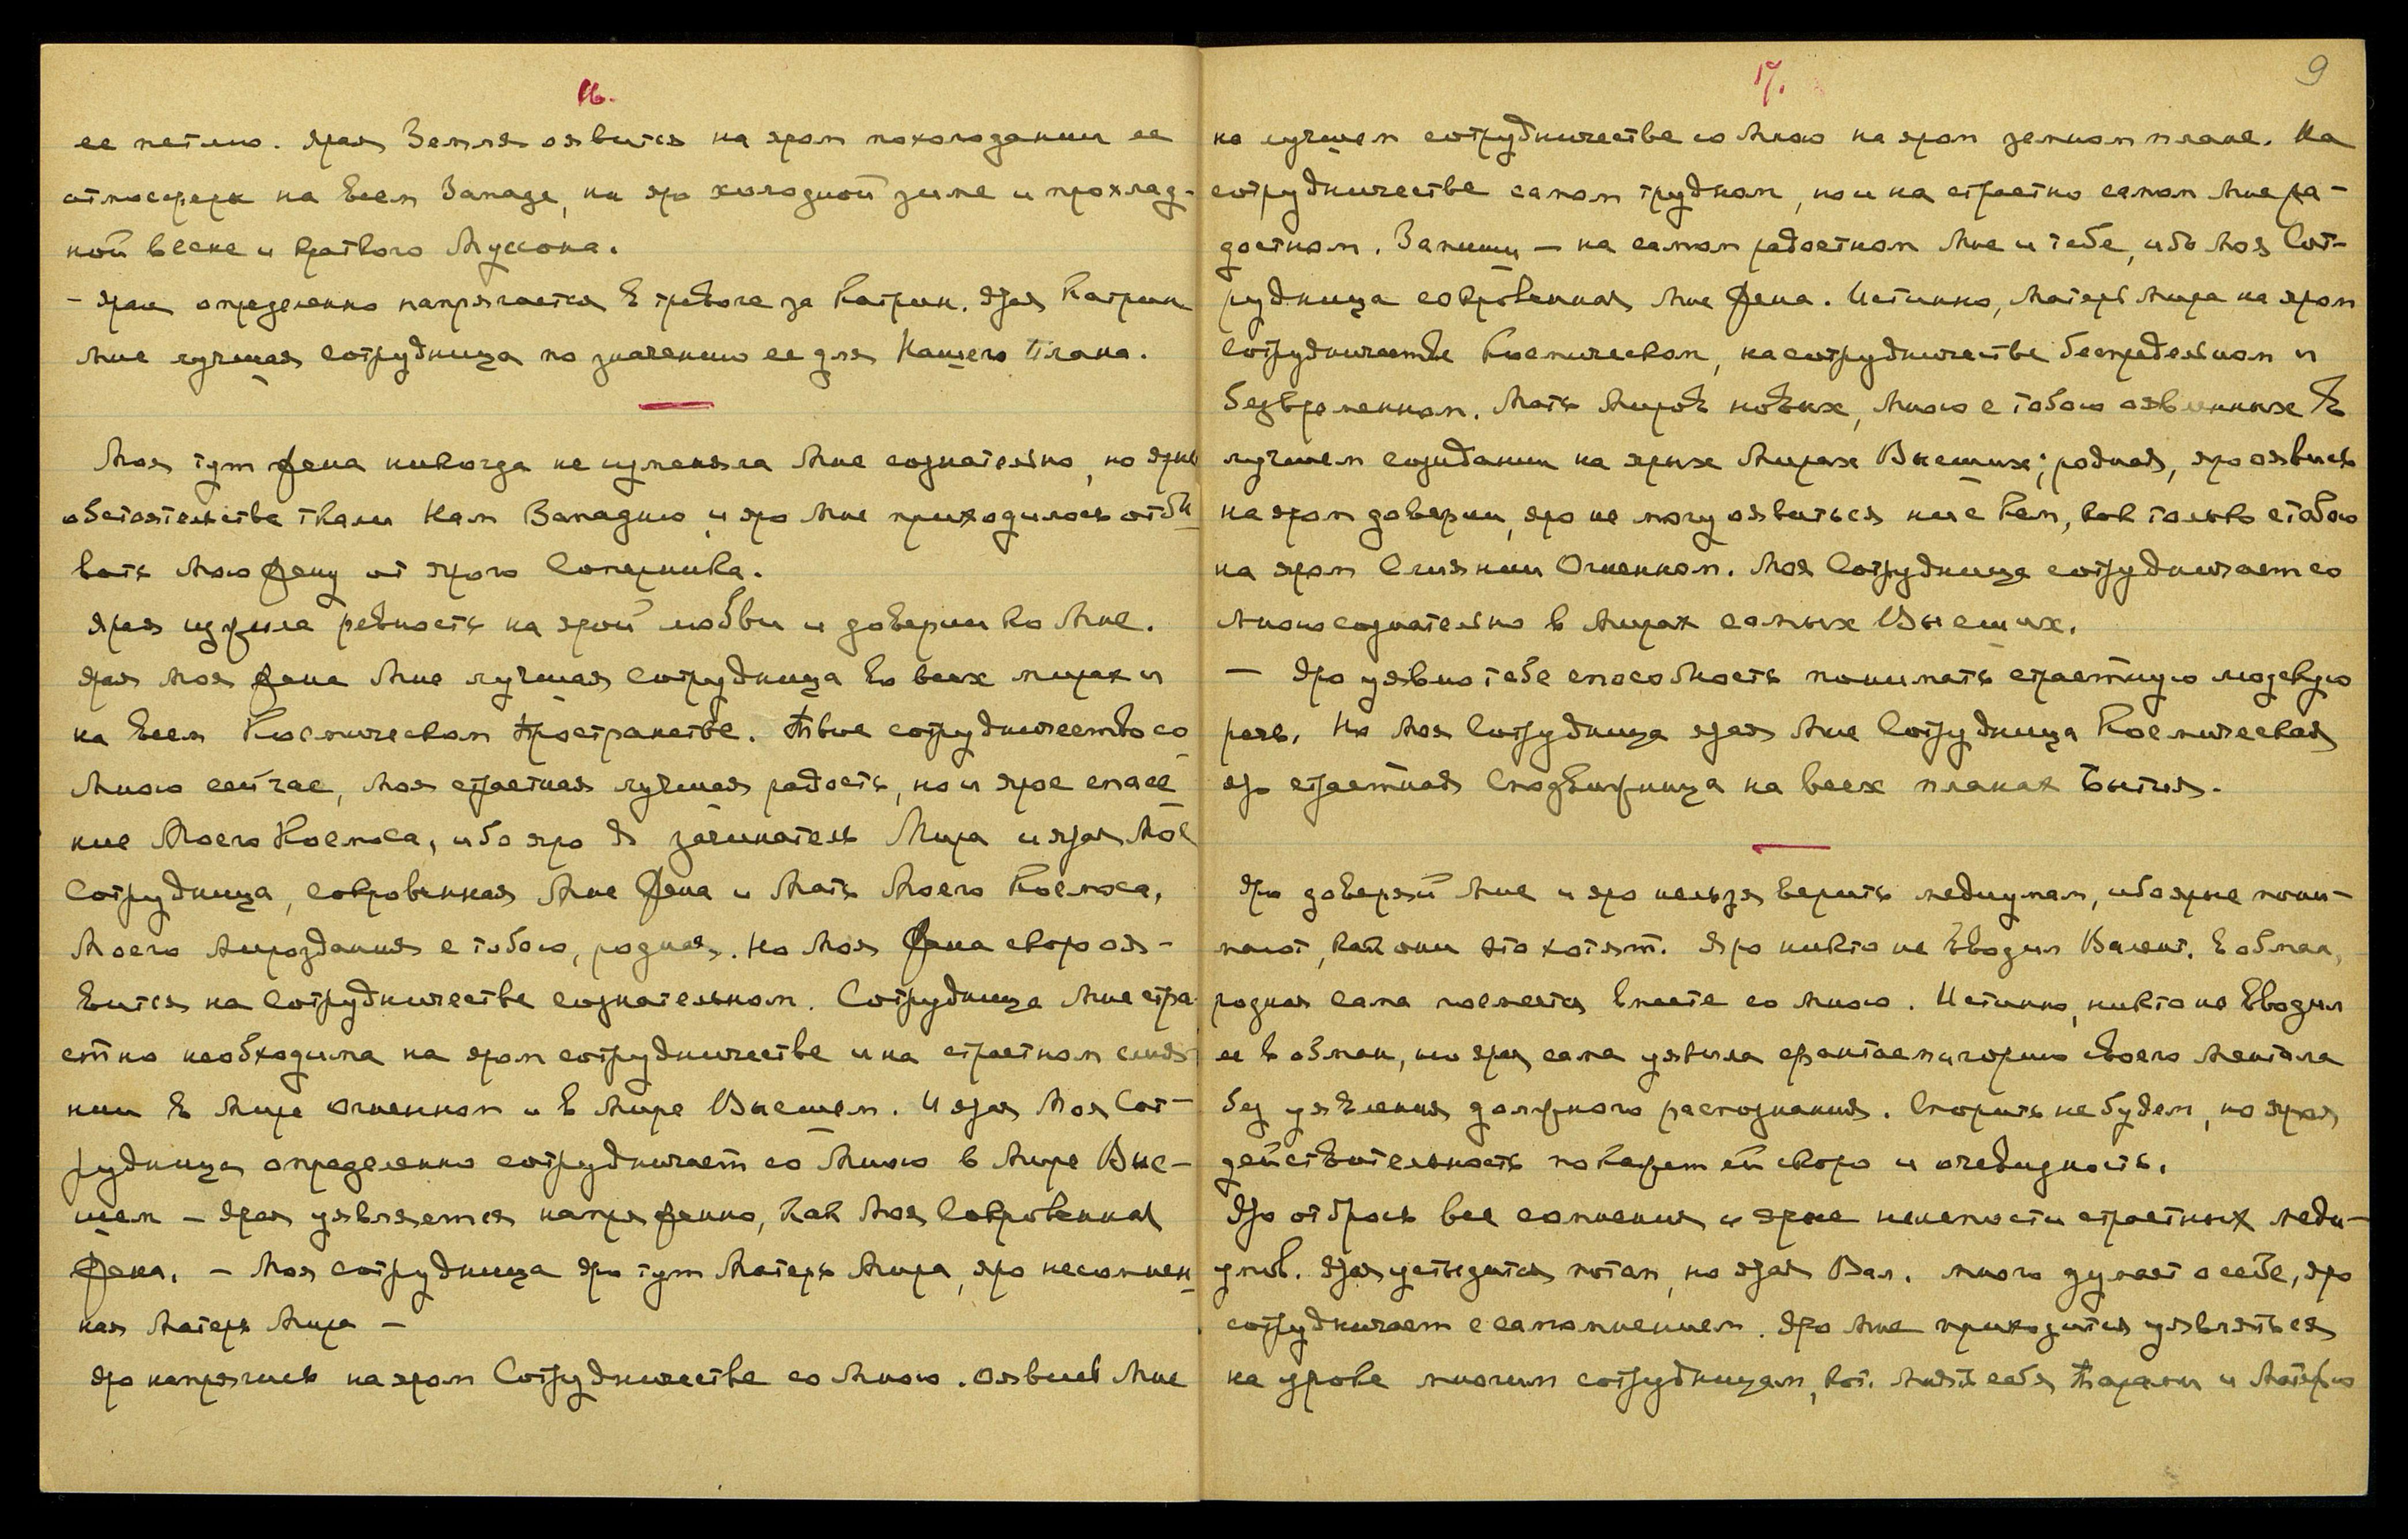 16.
ее петлю. Ярая Земля оявится на яром похолодании ее
атмосферы на всем Западе, на яро холодной зиме и прохлад-
ной весне и краткого Муссона.
- Ярая определенно напрягается в тревоге за Катрин. Ярая Катрин
Мне лучшая сотрудница по значению ее для Нашего Плана.
Моя тут Жена никогда не изменяла Мне сознательно, но ярые
обстоятельства ткали Нам Западню и яро Мне приходилось отби
вать Мою Жену от ярого Соперника.
Ярая изжила ревность на ярой любви и доверии ко Мне.
Ярая Моя Жена Мне лучшая Сотрудница во всех мирах и
на всем Космическом Пространстве. Твое сотрудничество со
Мною сейчас, Моя страстная лучшая радость, но и ярое спасе
ние Моего Космоса, ибо яро Я зачинатель Мира и ярая Моя
Сотрудница, сокровенная Мне Жена и Мать Моего Космоса,
Моего Мироздания с тобою, родная. Но Моя Жена скоро оя-
вится на Сотрудничестве сознательном. Сотрудница Мне стра
стно необходима на яром сотрудничестве и на страстном слия
нии в Мире Огненном и в Мире Высшем. И ярая Моя Сот-
рудница определенно сотрудничает со Мною в Мире Выс-
шем - Ярая уявляется напряженно, как Моя Сокровенная
Жена. - Моя сотрудница яро тут Матерь Мира, яро несомнен
ная Матерь Мира -
Яро напрягись на яром Сотрудничестве со Мною. Оявись Мне
17.
9
на лучшем сотрудничестве со Мною на яром земном плане. На
сотрудничестве самом трудном, но и на страстно самом Мне ра-
достном. Запиши - на самом радостном Мне и тебе, ибо Моя Сот-
рудница сокровенная Мне Жена. Истинно, Матерь Мира на яром
Сотрудничестве Космическом, на сотрудничестве беспредельном и
безвременном. Мать Миров новых, Мною с тобою оявленных в
лучшем созидании на ярых Мирах Высших; родная, яро оявись
на яром доверии, яро не могу оявиться ни с кем, как только с тобою
на яром Слиянии Огненном. Моя Сотрудница сотрудничает со
Мною сознательно в Мирах самых Высших.
- Яро уявлю тебе способность понимать страстную людскую
речь. Но Моя Сотрудница ярая Мне Сотрудница Космическая
яро страстная Сподвижница на всех планах Бытия.
Яро доверяй Мне и яро нельзя верить медиумам, ибо ярые пони-
мают, как они это хотят. Яро никто не вводил Валент. в обман,
родная сама посмеется вместе со Мною. Истинно, никто не вводил
ее в обман, но ярая сама уявила фантасмагорию своего Ментала
без уявления должного распознания. Спорить не будем, но ярая
действительность покажет ей скоро и очевидность.
Яро отбрось все сомнения и ярые нелепости страстных меди-
умов. Ярая устыдится потом, но ярая Вал. много думает о себе, яро
сотрудничает с самомнением. Яро Мне приходится уявляться
на уроке многим сотрудницам, кот. мнят себя Тарами и Матерью